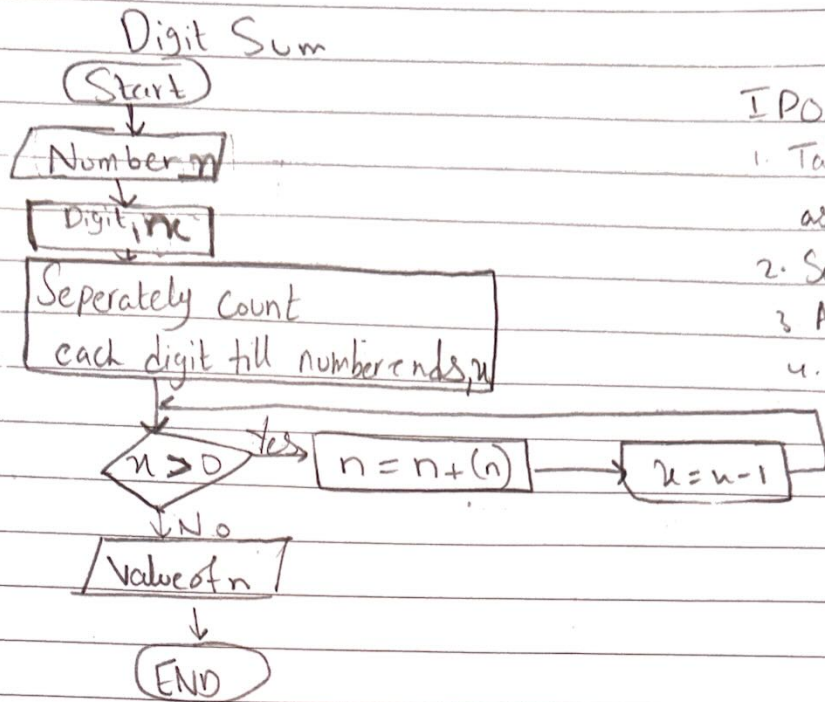 Digit Sum
Start
Number, n
Digit,
Seperately Count
each digit till number ends, x
x > 0
Yes
n = n + (n)
x = x - 1
No
Value of n
END
IPO
1. Ta
as
2. Se
3 A
4.